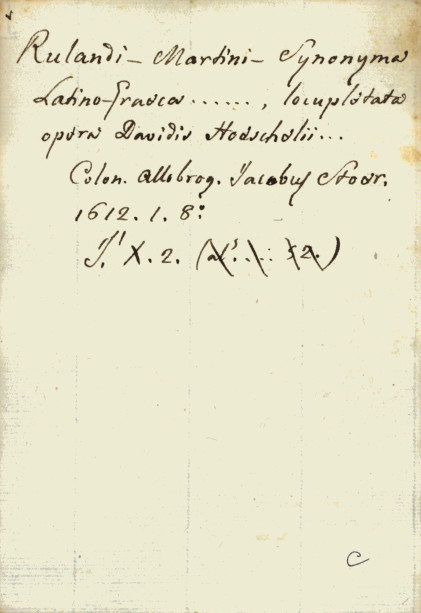 Rulandi - Martini - Synonyma
Latino-Graeca ......, locupletata
opera Davidis Hoeschelii...
Colon. Allobrog. Jacobus Stoer.
1612. 1. 8:
X. 2. ( 2. )
C